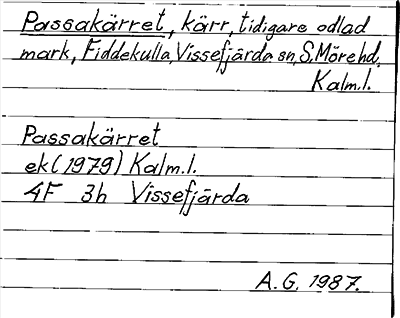 Passakärret, kärr, tidigare odlad
mark, Fiddekulla, Vissefjärda sn, S. Möre hd,
Kalm.l.
Passakärret
ek (1979) Kalm.l.
4F 3h Vissefjärda
A.G. 1987.